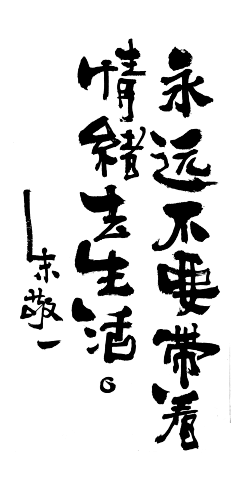 永远不要带着
情绪去生活。
——朱敬一